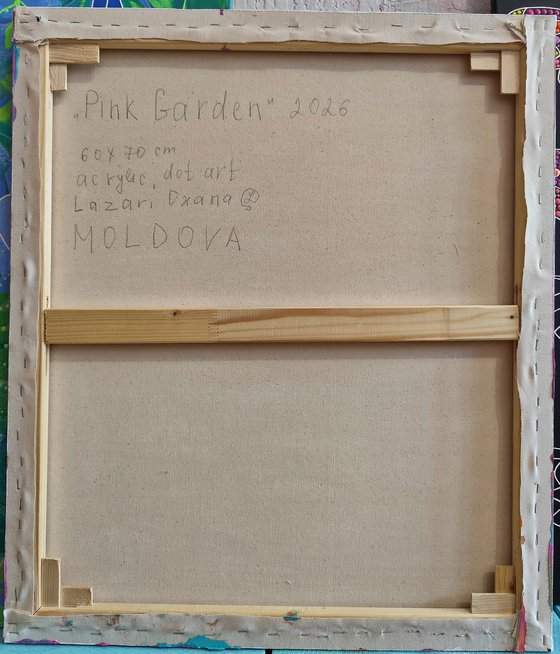 „Pink Garden" 2026
60x70 cm
acrylic, dot art
Lazari Oxana
MOLDOVA